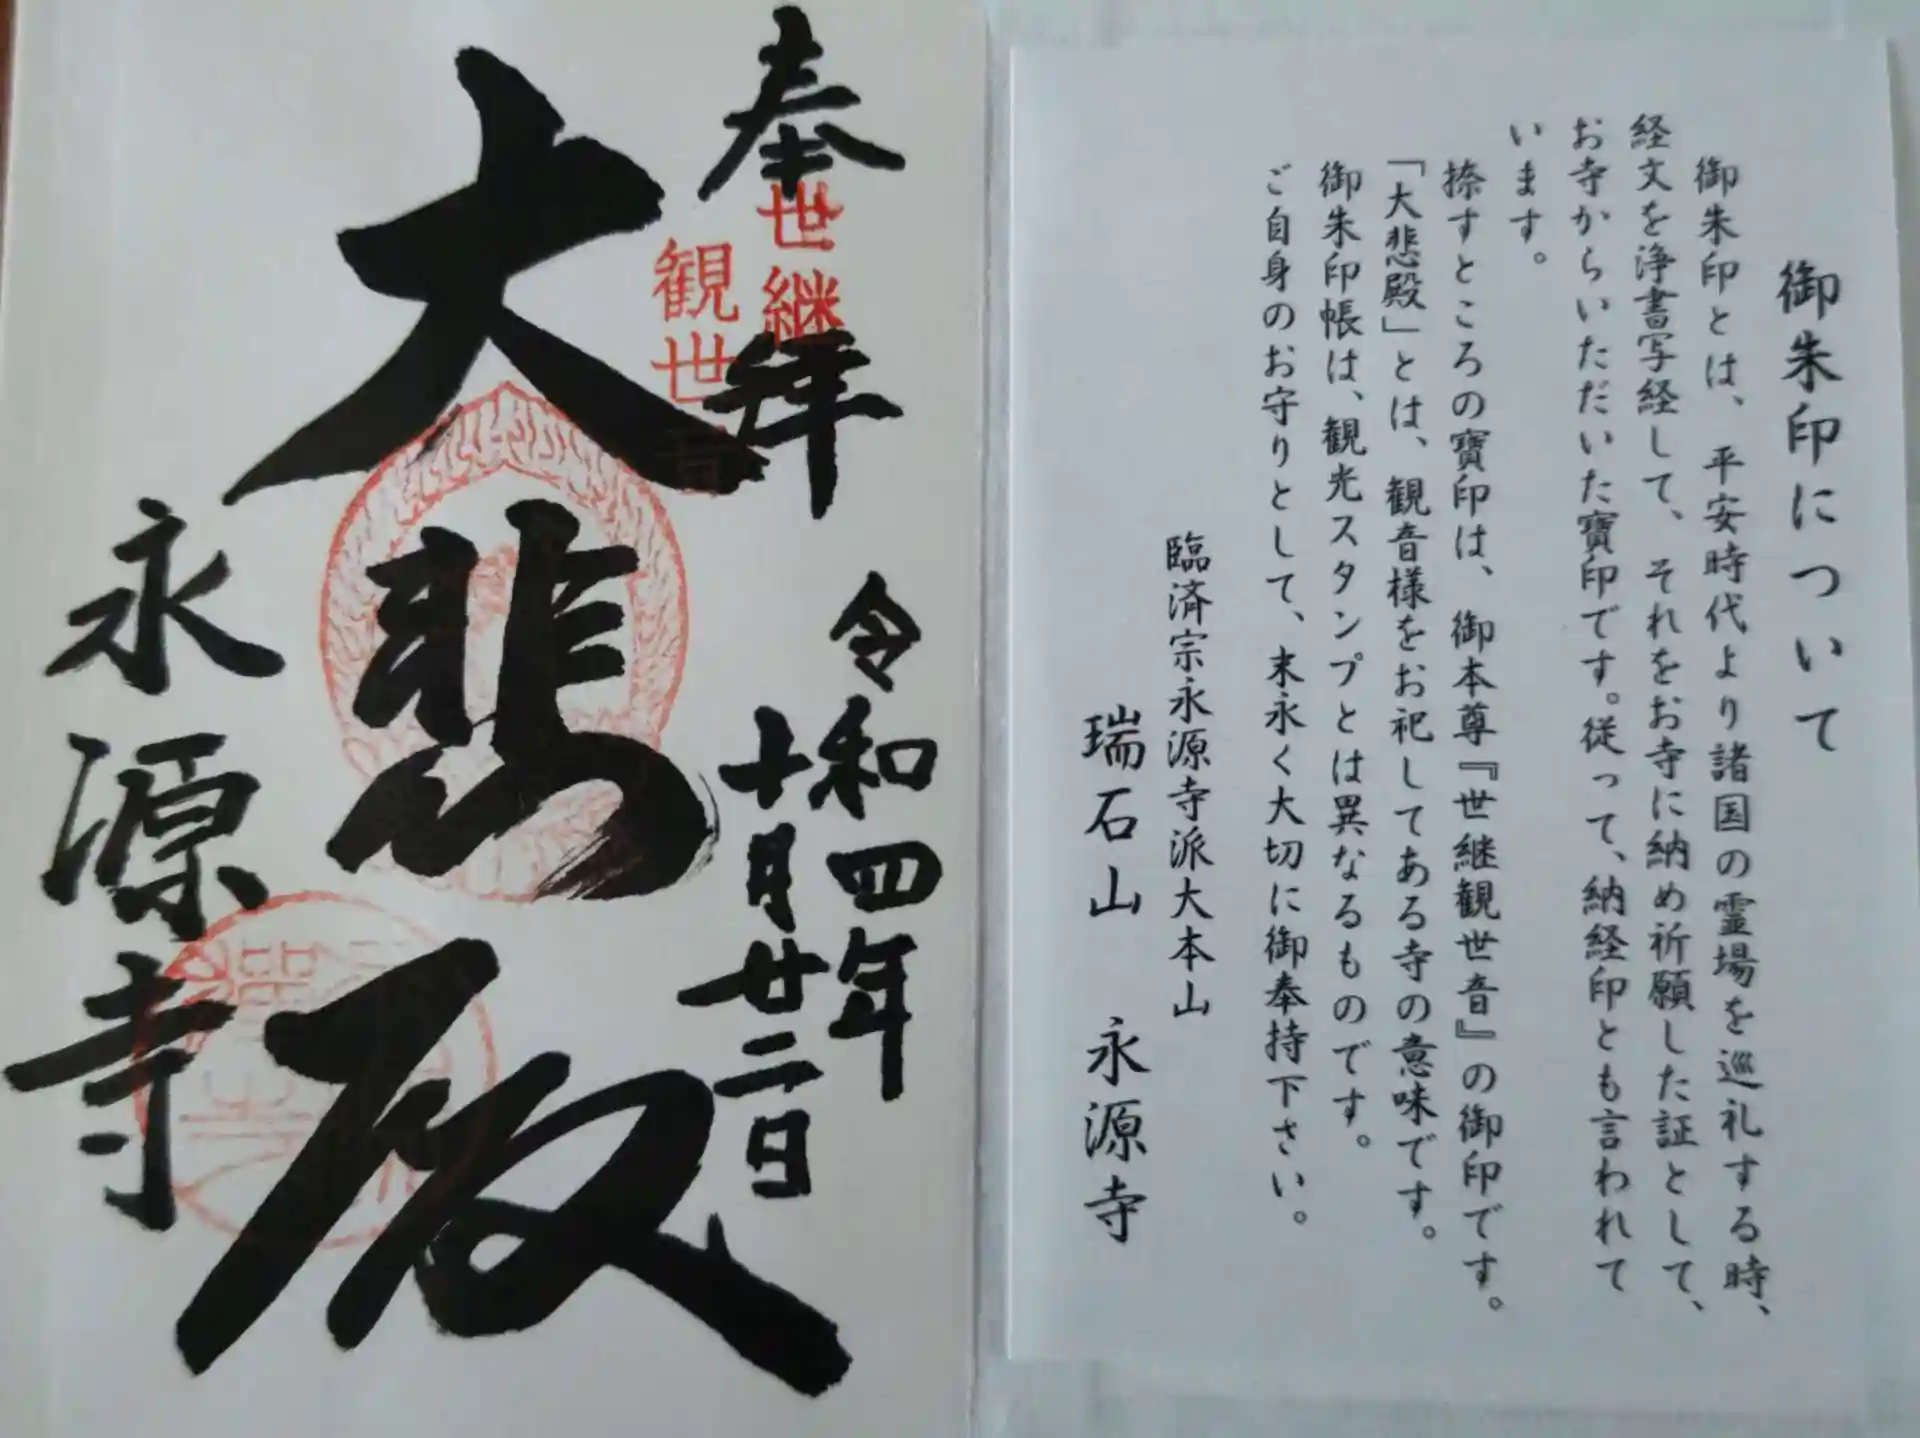 御朱印について
御朱印とは、平安時代より諸国の霊場を巡礼する時、
経文を浄書写経して、それをお寺に納め祈願した証として、
お寺からいただいた寶印です。従って、納経印とも言われて
います。
捺すところの寶印は、御本尊『世継観世音』の御印です。
「大悲殿」とは、観音様をお祀してある寺の意味です。
御朱印帳は、観光スタンプとは異なるものです。
ご自身のお守りとして、末永く大切に御奉持下さい。
臨済宗永源寺派大本山
瑞石山 永源寺
奉拝
世継
観世音
令和四年
十月廿二日
大悲殿
永源寺